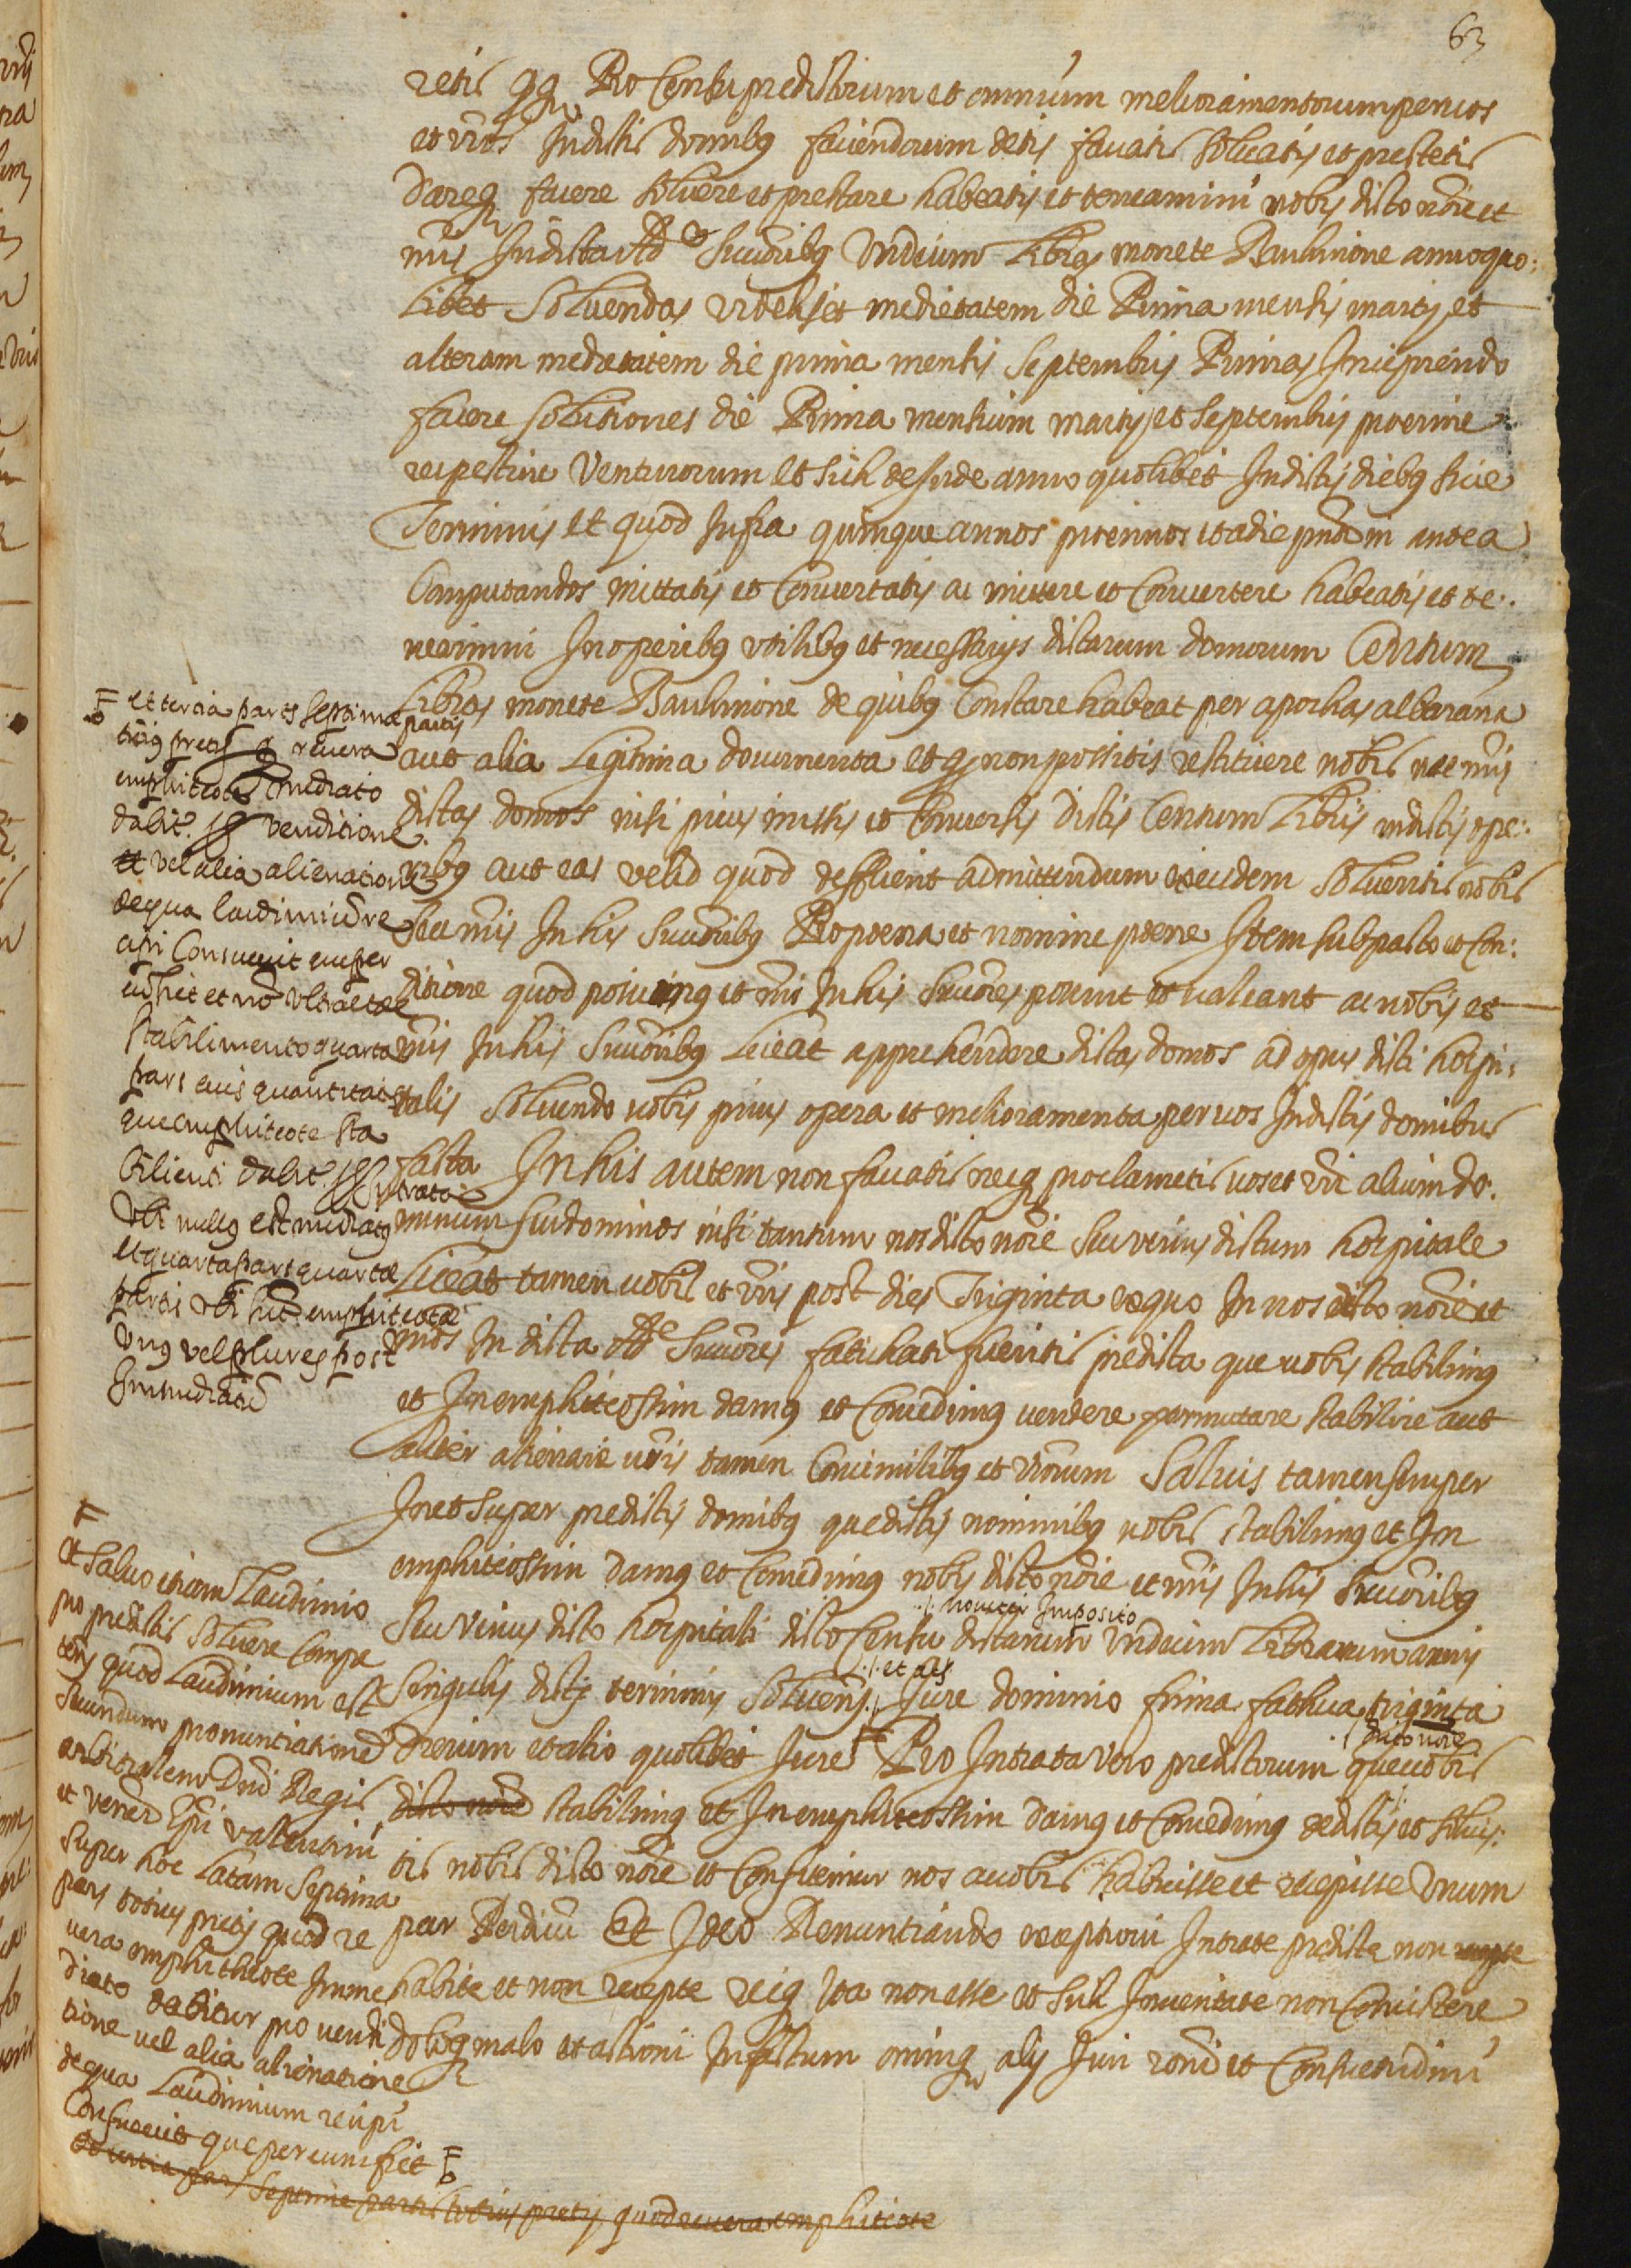 63
retis qq Pro Censu predictorum et omnium melioramentorum per vos
et vros In dictis domibus faciendorum detis faciatis solvatis et prestetis
dareq facere solvere et prestare habeatis et teneamini nobis dicto noie et
mis In dicta Succoribus Undecim Libras monete Barchinone anno quo:
libet solvendas videlicet medietatem die Prima mensis marcij et
alteram medietatem die prima mensis Septembris Primas Incipiendo
facere solutiones die Prima mensium martij et Septembris proxime
respective venturorum et sich deInde anno quolibet In dictis diebus sive
Terminis et quod Infra quinque annos proximos a die pnti in antea
Computandos mittatis et Convertatis ac mittere et Convertere habeatis et te:
neamini In operibus utilibus et necessarijs dictarum domorum Centum
Libras monete Barchinone de quibus Constare habeat per apochas albarana
aut alia Legitima documenta et q non possitis restituere nobis nec mis
dictas domos nisi prius missis et Conversis dictis Centum Libris in dictis ope:
ribus aut eas vel id quod deffuerit ad mittendum exeisdem solveritis nobis
seu mis In his Succoribus Pro poena et nomine poene Item sub pacto et Con:
ditione quod possimus et mi In his Succores possint et valeant ac nobis et
mis In his Succoribus Liceat apprehendere dictas domos ad opus dicti hospi:
talis solvendo vobis prius opera et melioramenta per vos In dictis domibus
facta In his autem non faciatis neq proclametis vos et vri alium do:
minum seu dominos nisi tantum nos dicto noie seu verius dictum hospitale
Liceat tamen vobis et vris post dies Triginta ex quo In nos dicto noie et
mos In dicta Succores fatichati fueritis predicta que vobis stabilimus
et In emphiteossim damus et Concedimus vendere permutare stabilire aut
aliter alienare vris tamen Consimilibus et vrorum Salvis tamen semper
In et super predictis domibus que dictis nominibus vobis stabilimus et In
emphiteossim damus et Concedimus nobis dicto noie et mis In his Succoribus
seu verius dicto hospitali dicto Censu dictarum Undecim Librarum annis
·/· noviter Imposito
singulis dictis terminis solvens Jure dominio firma fathica triginta
·/· et als
dierum et alio quolibet Jure Pro Intrata vero predictorum que vobis
·/ dicto noie
dicto noie stabilimus et In emphiteossim damus et Concedimus dedistis et solvis:
tis nobis dicto noie et Confitemur nos a vobis habuisse et recepisse Unum
par Perdicu Et Ideo Renuntiando exceptioni Intrate predicte non
habite et non recepte reiq ita non esse et sich In veritate non Consistere
doloq malo et actioni In factum omniq alij Juri roni et Consuetudini
et tercia pars septimae partis
totius pretij q revera
emphiteota Inmediato
dabit pro venditione
et vel alia alienatione
de qua laudimiu re
cipi Consuevit que per
eu fiet et no Ultra et de
stabilimento quarta
pars eius quantitatis
que emphiteote sta
bilienti dabit pro Intrata
Ubi nullus est mediatus
et quarta pars quartae
partis Ubi sint emphiteotae
Unus vel plures post
Inmediatu
et salvo etiam Laudimio
pro predictis solvere Compe
tens quod Laudimium est
secundum pronuntiatione
arbitralem Dni Regis
et vener Epi valentini
super hoc Latam septima
pars totius pretij quod re
vera emphitheote Inme
diato dabitur pro vendi
tione vel alia alienatione
de qua Laudimium recipi
Consuevit que per eum fiet
et tertia pars septime partis totius pretij quod revera emphiteote